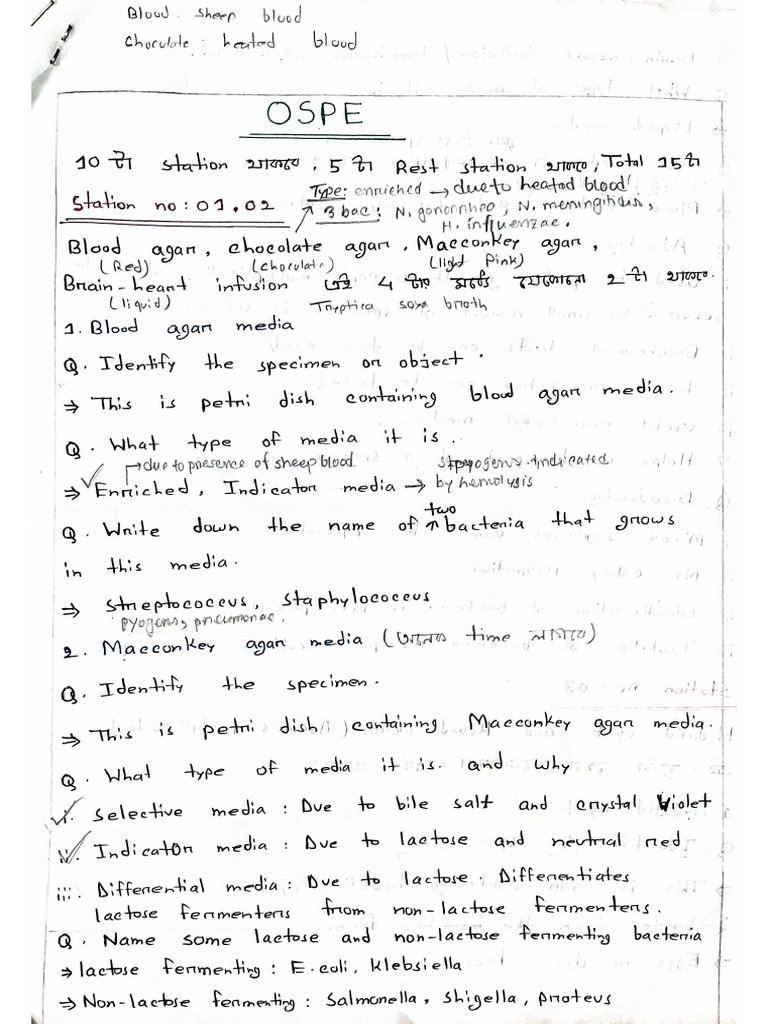 Blood : sheep blood
Chocolate : heated blood
OSPE
10 টা station থাকবে, 5 টা Rest station থাকবে, Total 15 টা
Station no : 01, 02
Type: enriched → due to heated blood
3 bac: N. gonorrhea, N. meningitidis,
H. influenzae.
Blood agar, chocolate agar, Macconkey agar,
(Red) (chocolate) (light Pink)
Brain-heart infusion এই 4 টার মধ্যে যেকোনো 2 টা থাকবে.
(liquid) Tryptica soya broth
1. Blood agar media
Q. Identify the specimen or object.
⇒ This is petri dish containing blood agar media.
Q. What type of media it is.
due to presence of sheep blood st. pyogens. indicated
⇒ Enriched, Indicator media → by hemolysis
Q. Write down the name of two bacteria that grows
in this media.
⇒ Streptococcus, Staphylococcus
pyogens, pneumonae.
2. Macconkey agar media (অনেক time লাগবে)
Q. Identify the specimen.
⇒ This is petri dish containing Macconkey agar media.
Q. What type of media it is. and why
i. Selective media : Due to bile salt and crystal Violet
ii. Indicator media : Due to lactose and neutral red
iii. Differential media : Due to lactose. Differentiates
lactose fermenters from non-lactose fermenters.
Q. Name some lactose and non-lactose fermenting bacteria
⇒ lactose fermenting : E.coli, Klebsiella
⇒ Non-lactose fermenting : Salmonella, Shigella, proteus